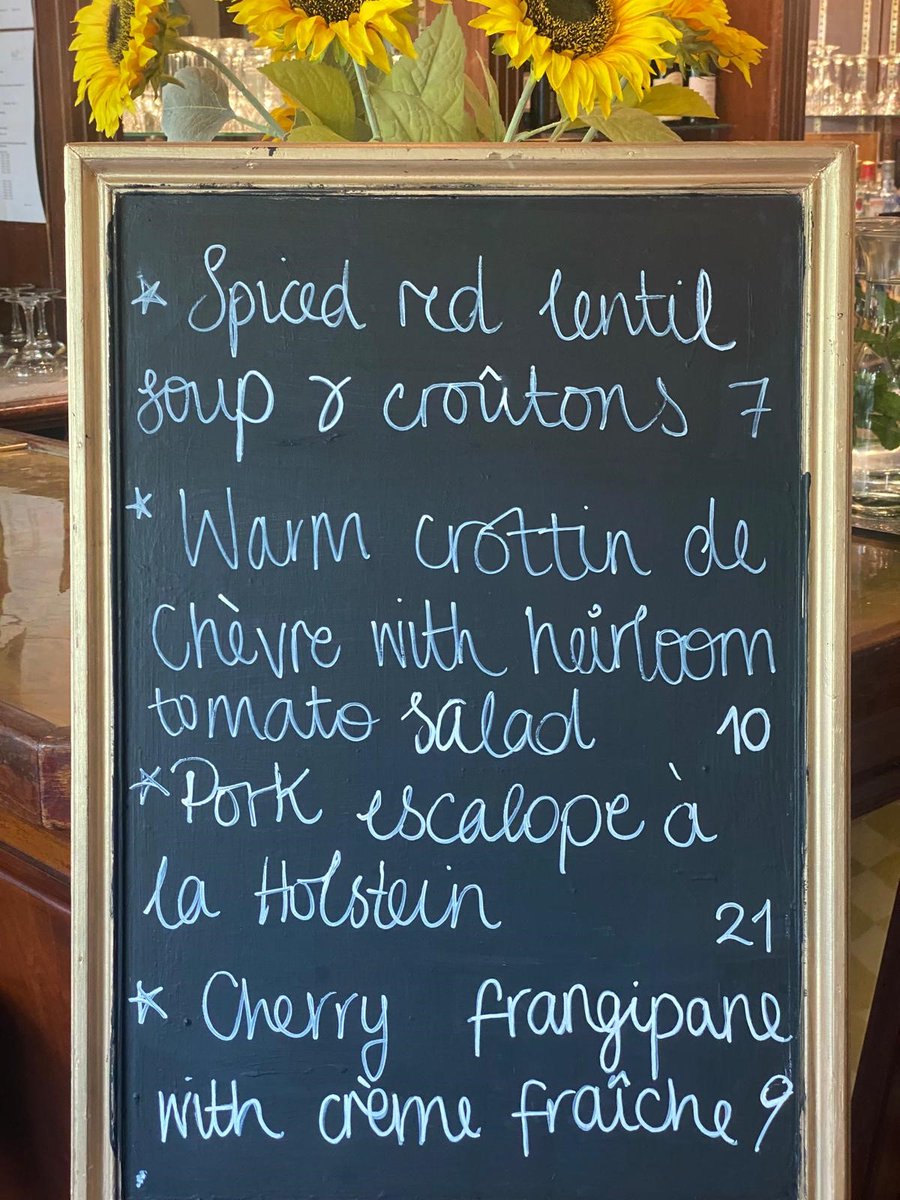 * Spiced red lentil
soup & croûtons 7
* Warm crottin de
Chèvre with heirloom
tomato salad 10
* Pork escalope à
la Holstein 21
* Cherry frangipane
with crème fraîche 9